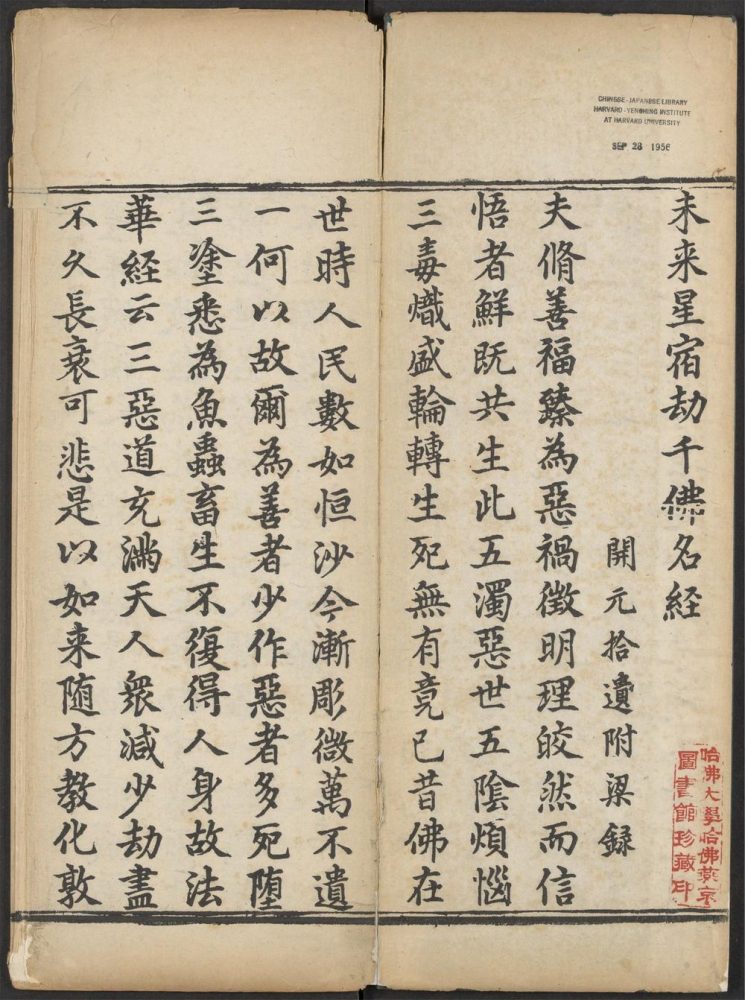 CHINESE-JAPANESE LIBRARY
HARVARD-YENCHING INSTITUTE
AT HARVARD UNIVERSITY
SEP 28 1956
未来星宿劫千佛名経
開元拾遺附梁録
夫脩善福臻為惡禍徴明理皎然而信
悟者鮮既共生此五濁惡世五陰煩惱
三毒熾盛輪轉生死無有竟已昔佛在
世時人民數如恒沙今漸彫微萬不遺
一何以故爾為善者少作惡者多死堕
三塗悉為魚蟲畜生不復得人身故法
華経云三惡道充滿天人衆減少劫盡
不久長衰可悲是以如来随方教化敦
哈佛大學哈佛燕京
圖書館珍藏印